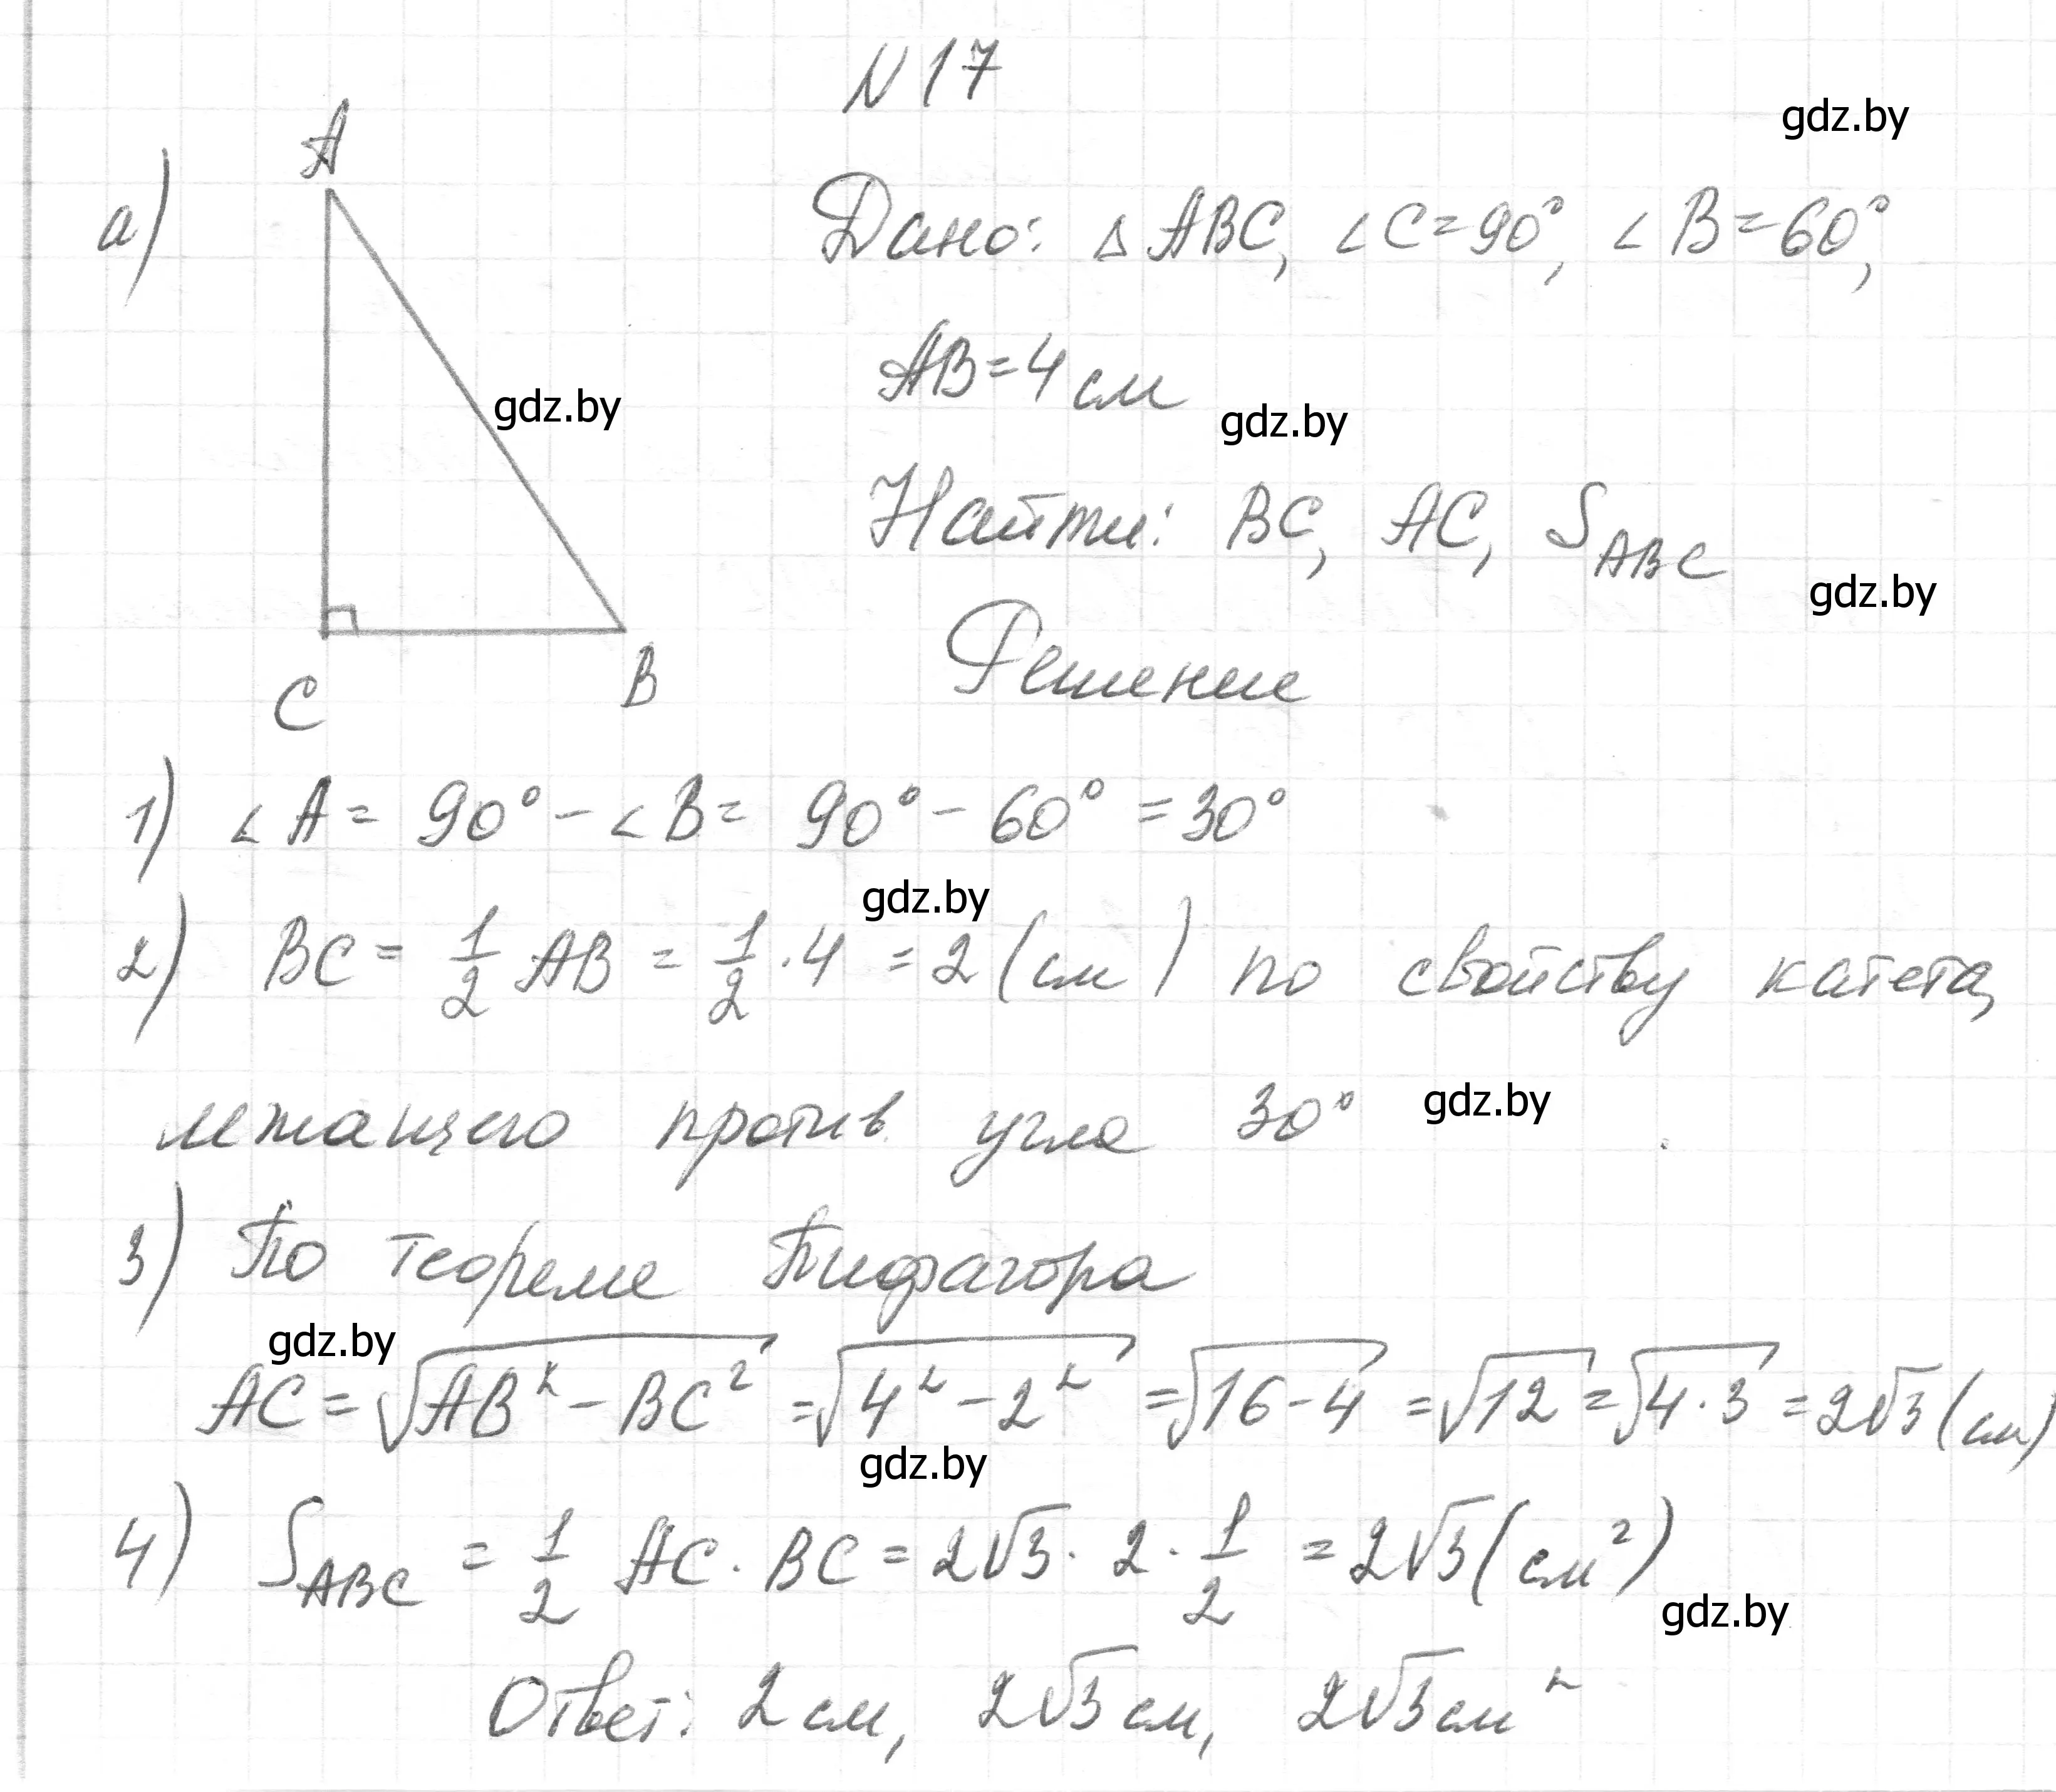 N 17
gdz.by
а)
A
Дано: △ ABC, ∠C=90°, ∠B=60°,
AB=4 см
gdz.by
gdz.by
Найти: BC, AC, S_ABC
gdz.by
Решение
C
B
1) ∠A = 90° - ∠B = 90° - 60° = 30°
gdz.by
2) BC = 1/2 AB = 1/2 · 4 = 2 (см) по свойству катета,
лежащего против угла 30°
gdz.by
3) По теореме Пифагора
gdz.by
AC = √(AB² - BC²) = √(4² - 2²) = √(16-4) = √12 = √(4·3) = 2√3 (см)
gdz.by
4) S_ABC = 1/2 AC · BC = 2√3 · 2 · 1/2 = 2√3 (см²)
gdz.by
Ответ: 2 см, 2√3 см, 2√3 см²